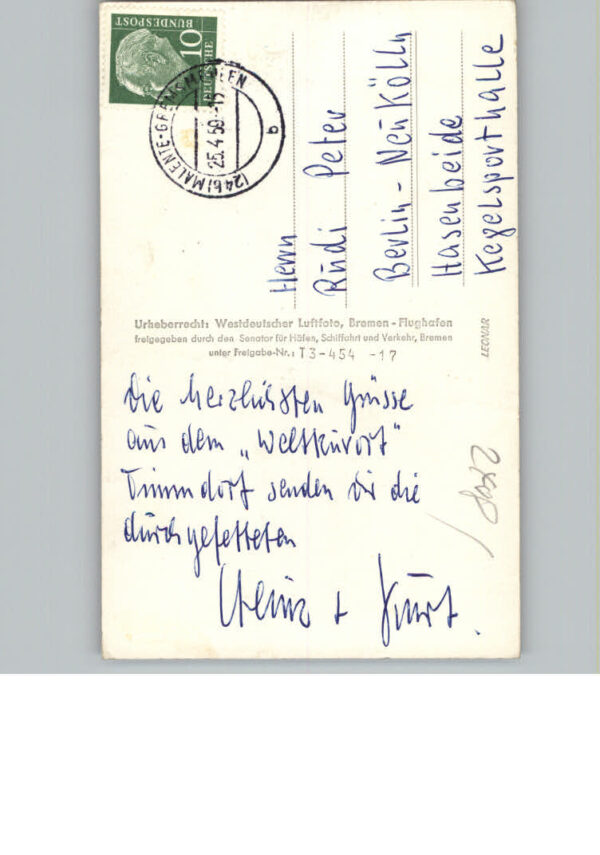 DEUTSCHE
BUNDESPOST
10
(24b) MALENTE-GREMSMÜHLEN
25.4.59-15
b
Herrn
Rudi Peter
Berlin-Neukölln
Hasenheide
Kegelsporthalle
Urheberrecht: Westdeutscher Luftfoto, Bremen-Flughafen
freigegeben durch den Senator für Häfen, Schiffahrt und Verkehr, Bremen
unter Freigabe-Nr.: T3-454 -17
LEONAR
Die herzlichsten Grüsse
aus dem „Weltkurort"
Timmdorf senden Dir die
durchgefetteten
Heinz + Kurt.